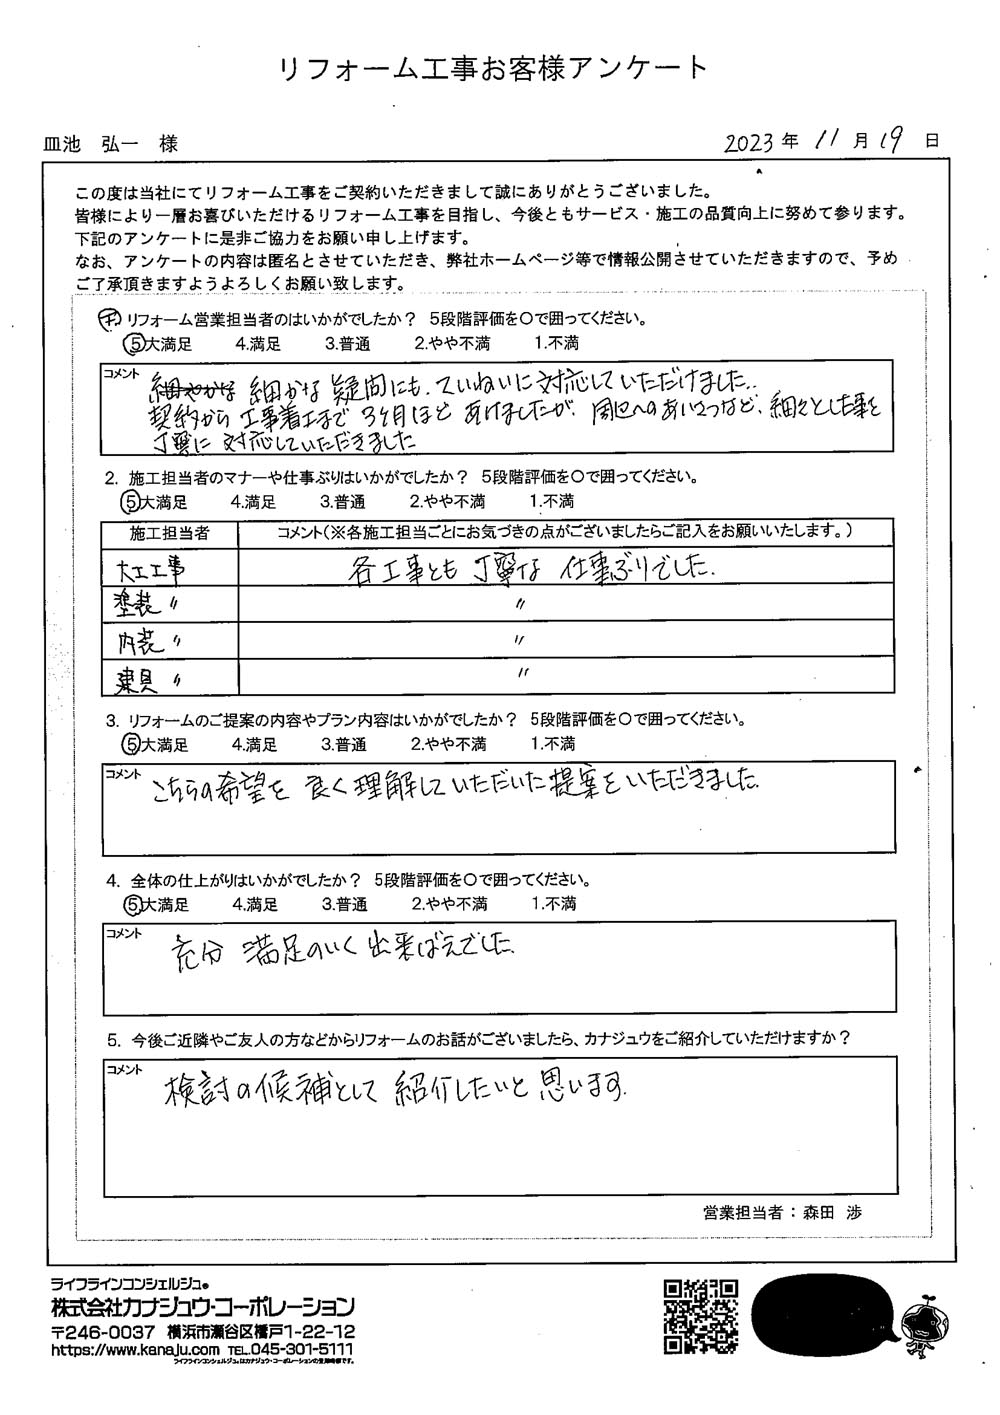 リフォーム工事お客様アンケート
皿池 弘一 様 2023年 11月 19日
この度は当社にてリフォーム工事をご契約いただきまして誠にありがとうございました。
皆様により一層お喜びいただけるリフォーム工事を目指し、今後ともサービス・施工の品質向上に努めて参ります。
下記のアンケートに是非ご協力をお願い申し上げます。
なお、アンケートの内容は匿名とさせていただき、弊社ホームページ等で情報公開させていただきますので、予め
ご了承頂きますようよろしくお願い致します。
リフォーム営業担当者のはいかがでしたか？ 5段階評価を〇で囲ってください。
5大満足 4.満足 3.普通 2.やや不満 1.不満
コメント
細かな 疑問にも、ていねいに対応していただけました。
契約から 工事着工まで 3ヶ月ほど あけましたが、周辺へのあいさつなど、細々とした事を
丁寧に 対応していただきました
2. 施工担当者のマナーや仕事ぶりはいかがでしたか？ 5段階評価を〇で囲ってください。
5大満足 4.満足 3.普通 2.やや不満 1.不満
施工担当者 コメント(※各施工担当ごとにお気づきの点がございましたらご記入をお願いいたします。)
大工工事 各工事とも 丁寧な 仕事ぶりでした.
塗装 〃 〃
内装 〃 〃
建具 〃 〃
3. リフォームのご提案の内容やプラン内容はいかがでしたか？ 5段階評価を〇で囲ってください。
5大満足 4.満足 3.普通 2.やや不満 1.不満
コメント
こちらの希望を 良く理解していただいた提案をいただきました.
4. 全体の仕上がりはいかがでしたか？ 5段階評価を〇で囲ってください。
5大満足 4.満足 3.普通 2.やや不満 1.不満
コメント
充分 満足のいく 出来ばえでした.
5. 今後ご近隣やご友人の方などからリフォームのお話がございましたら、カナジュウをご紹介していただけますか？
コメント
検討の候補として 紹介したいと 思います.
営業担当者：森田 渉
ライフラインコンシェルジュ®
株式会社カナジュウ・コーポレーション
〒246-0037 横浜市瀬谷区橋戸1-22-12
https://www.kanaju.com TEL.045-301-5111
ライフラインコンシェルジュ®はカナジュウ・コーポレーションの登録商標です。